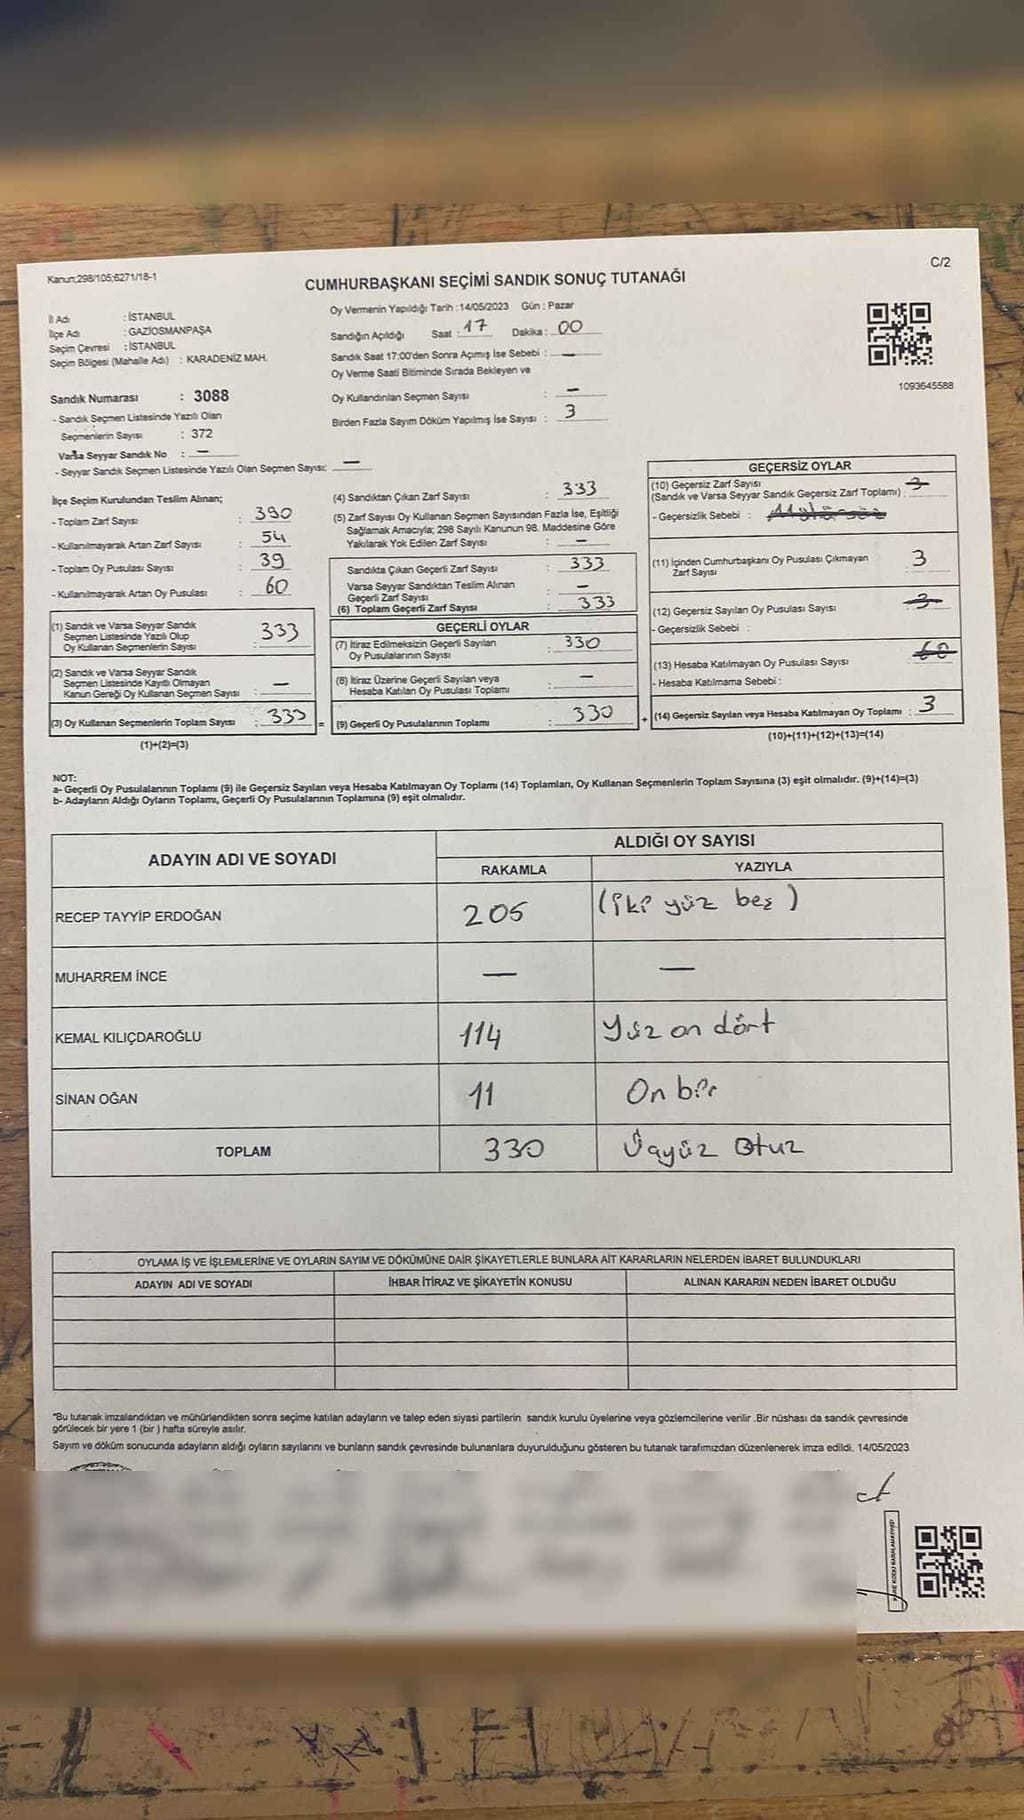 Kanun;298/105;6271/18-1
C/2
CUMHURBAŞKANI SEÇİMİ SANDIK SONUÇ TUTANAĞI
İl Adı : İSTANBUL
İlçe Adı : GAZİOSMANPAŞA
Seçim Çevresi : İSTANBUL
Seçim Bölgesi (Mahalle Adı) : KARADENİZ MAH.
Oy Vermenin Yapıldığı Tarih :14/05/2023 Gün : Pazar
Sandığın Açıldığı Saat : 17 Dakika : 00
Sandık Saat 17:00'den Sonra Açımış İse Sebebi : —
Oy Verme Saati Bitiminde Sırada Bekleyen ve
Oy Kullandırılan Seçmen Sayısı : —
Birden Fazla Sayım Döküm Yapılmış İse Sayısı : 3
1093645588
Sandık Numarası : 3088
- Sandık Seçmen Listesinde Yazılı Olan
Seçmenlerin Sayısı : 372
Varsa Seyyar Sandık No : —
- Seyyar Sandık Seçmen Listesinde Yazılı Olan Seçmen Sayısı: —
İlçe Seçim Kurulundan Teslim Alınan;
- Toplam Zarf Sayısı : 390
- Kullanılmayarak Artan Zarf Sayısı : 54
- Toplam Oy Pusulası Sayısı : 39
- Kullanılmayarak Artan Oy Pusulası : 60
(1) Sandık ve Varsa Seyyar Sandık
Seçmen Listesinde Yazılı Olup
Oy Kullanan Seçmenlerin Sayısı : 333
(2) Sandık ve Varsa Seyyar Sandık
Seçmen Listesinde Kayıtlı Olmayan
Kanun Gereği Oy Kullanan Seçmen Sayısı : —
(3) Oy Kullanan Seçmenlerin Toplam Sayısı : 333 =
(1)+(2)=(3)
(4) Sandıktan Çıkan Zarf Sayısı : 333
(5) Zarf Sayısı Oy Kullanan Seçmen Sayısından Fazla İse, Eşitliği
Sağlamak Amacıyla; 298 Sayılı Kanunun 98. Maddesine Göre
Yakılarak Yok Edilen Zarf Sayısı : —
Sandıkta Çıkan Geçerli Zarf Sayısı : 333
Varsa Seyyar Sandıktan Teslim Alınan
Geçerli Zarf Sayısı : —
(6) Toplam Geçerli Zarf Sayısı : 333
GEÇERLİ OYLAR
(7) İtiraz Edilmeksizin Geçerli Sayılan
Oy Pusulalarının Sayısı : 330
(8) İtiraz Üzerine Geçerli Sayılan veya
Hesaba Katılan Oy Pusulası Toplamı : —
(9) Geçerli Oy Pusulalarının Toplamı : 330 +
GEÇERSİZ OYLAR
(10) Geçersiz Zarf Sayısı
(Sandık ve Varsa Seyyar Sandık Geçersiz Zarf Toplamı) : 3
- Geçersizlik Sebebi :
(11) İçinden Cumhurbaşkanı Oy Pusulası Çıkmayan
Zarf Sayısı : 3
(12) Geçersiz Sayılan Oy Pusulası Sayısı : 3
- Geçersizlik Sebebi :
(13) Hesaba Katılmayan Oy Pusulası Sayısı : 60
- Hesaba Katılmama Sebebi :
(14) Geçersiz Sayılan veya Hesaba Katılmayan Oy Toplamı : 3
(10)+(11)+(12)+(13)=(14)
NOT:
a- Geçerli Oy Pusulalarının Toplamı (9) ile Geçersiz Sayılan veya Hesaba Katılmayan Oy Toplamı (14) Toplamları, Oy Kullanan Seçmenlerin Toplam Sayısına (3) eşit olmalıdır. (9)+(14)=(3)
b- Adayların Aldığı Oyların Toplamı, Geçerli Oy Pusulalarının Toplamına (9) eşit olmalıdır.
ADAYIN ADI VE SOYADI
ALDIĞI OY SAYISI
RAKAMLA YAZIYLA
RECEP TAYYİP ERDOĞAN 205 (iki yüz beş)
MUHARREM İNCE — —
KEMAL KILIÇDAROĞLU 114 Yüz on dört
SİNAN OĞAN 11 On bir
TOPLAM 330 Üçyüz Otuz
OYLAMA İŞ VE İŞLEMLERİNE VE OYLARIN SAYIM VE DÖKÜMÜNE DAİR ŞİKAYETLERLE BUNLARA AİT KARARLARIN NELERDEN İBARET BULUNDUKLARI
ADAYIN ADI VE SOYADI İHBAR İTİRAZ VE ŞİKAYETİN KONUSU ALINAN KARARIN NEDEN İBARET OLDUĞU
"Bu tutanak imzalandıktan ve mühürlendikten sonra seçime katılan adayların ve talep eden siyasi partilerin sandık kurulu üyelerine veya gözlemcilerine verilir .Bir nüshası da sandık çevresinde
görülecek bir yere 1 (bir ) hafta süreyle asılır.
Sayım ve döküm sonucunda adayların aldığı oyların sayılarını ve bunların sandık çevresinde bulunanlara duyurulduğunu gösteren bu tutanak tarafımızdan düzenlenerek imza edildi. 14/05/2023